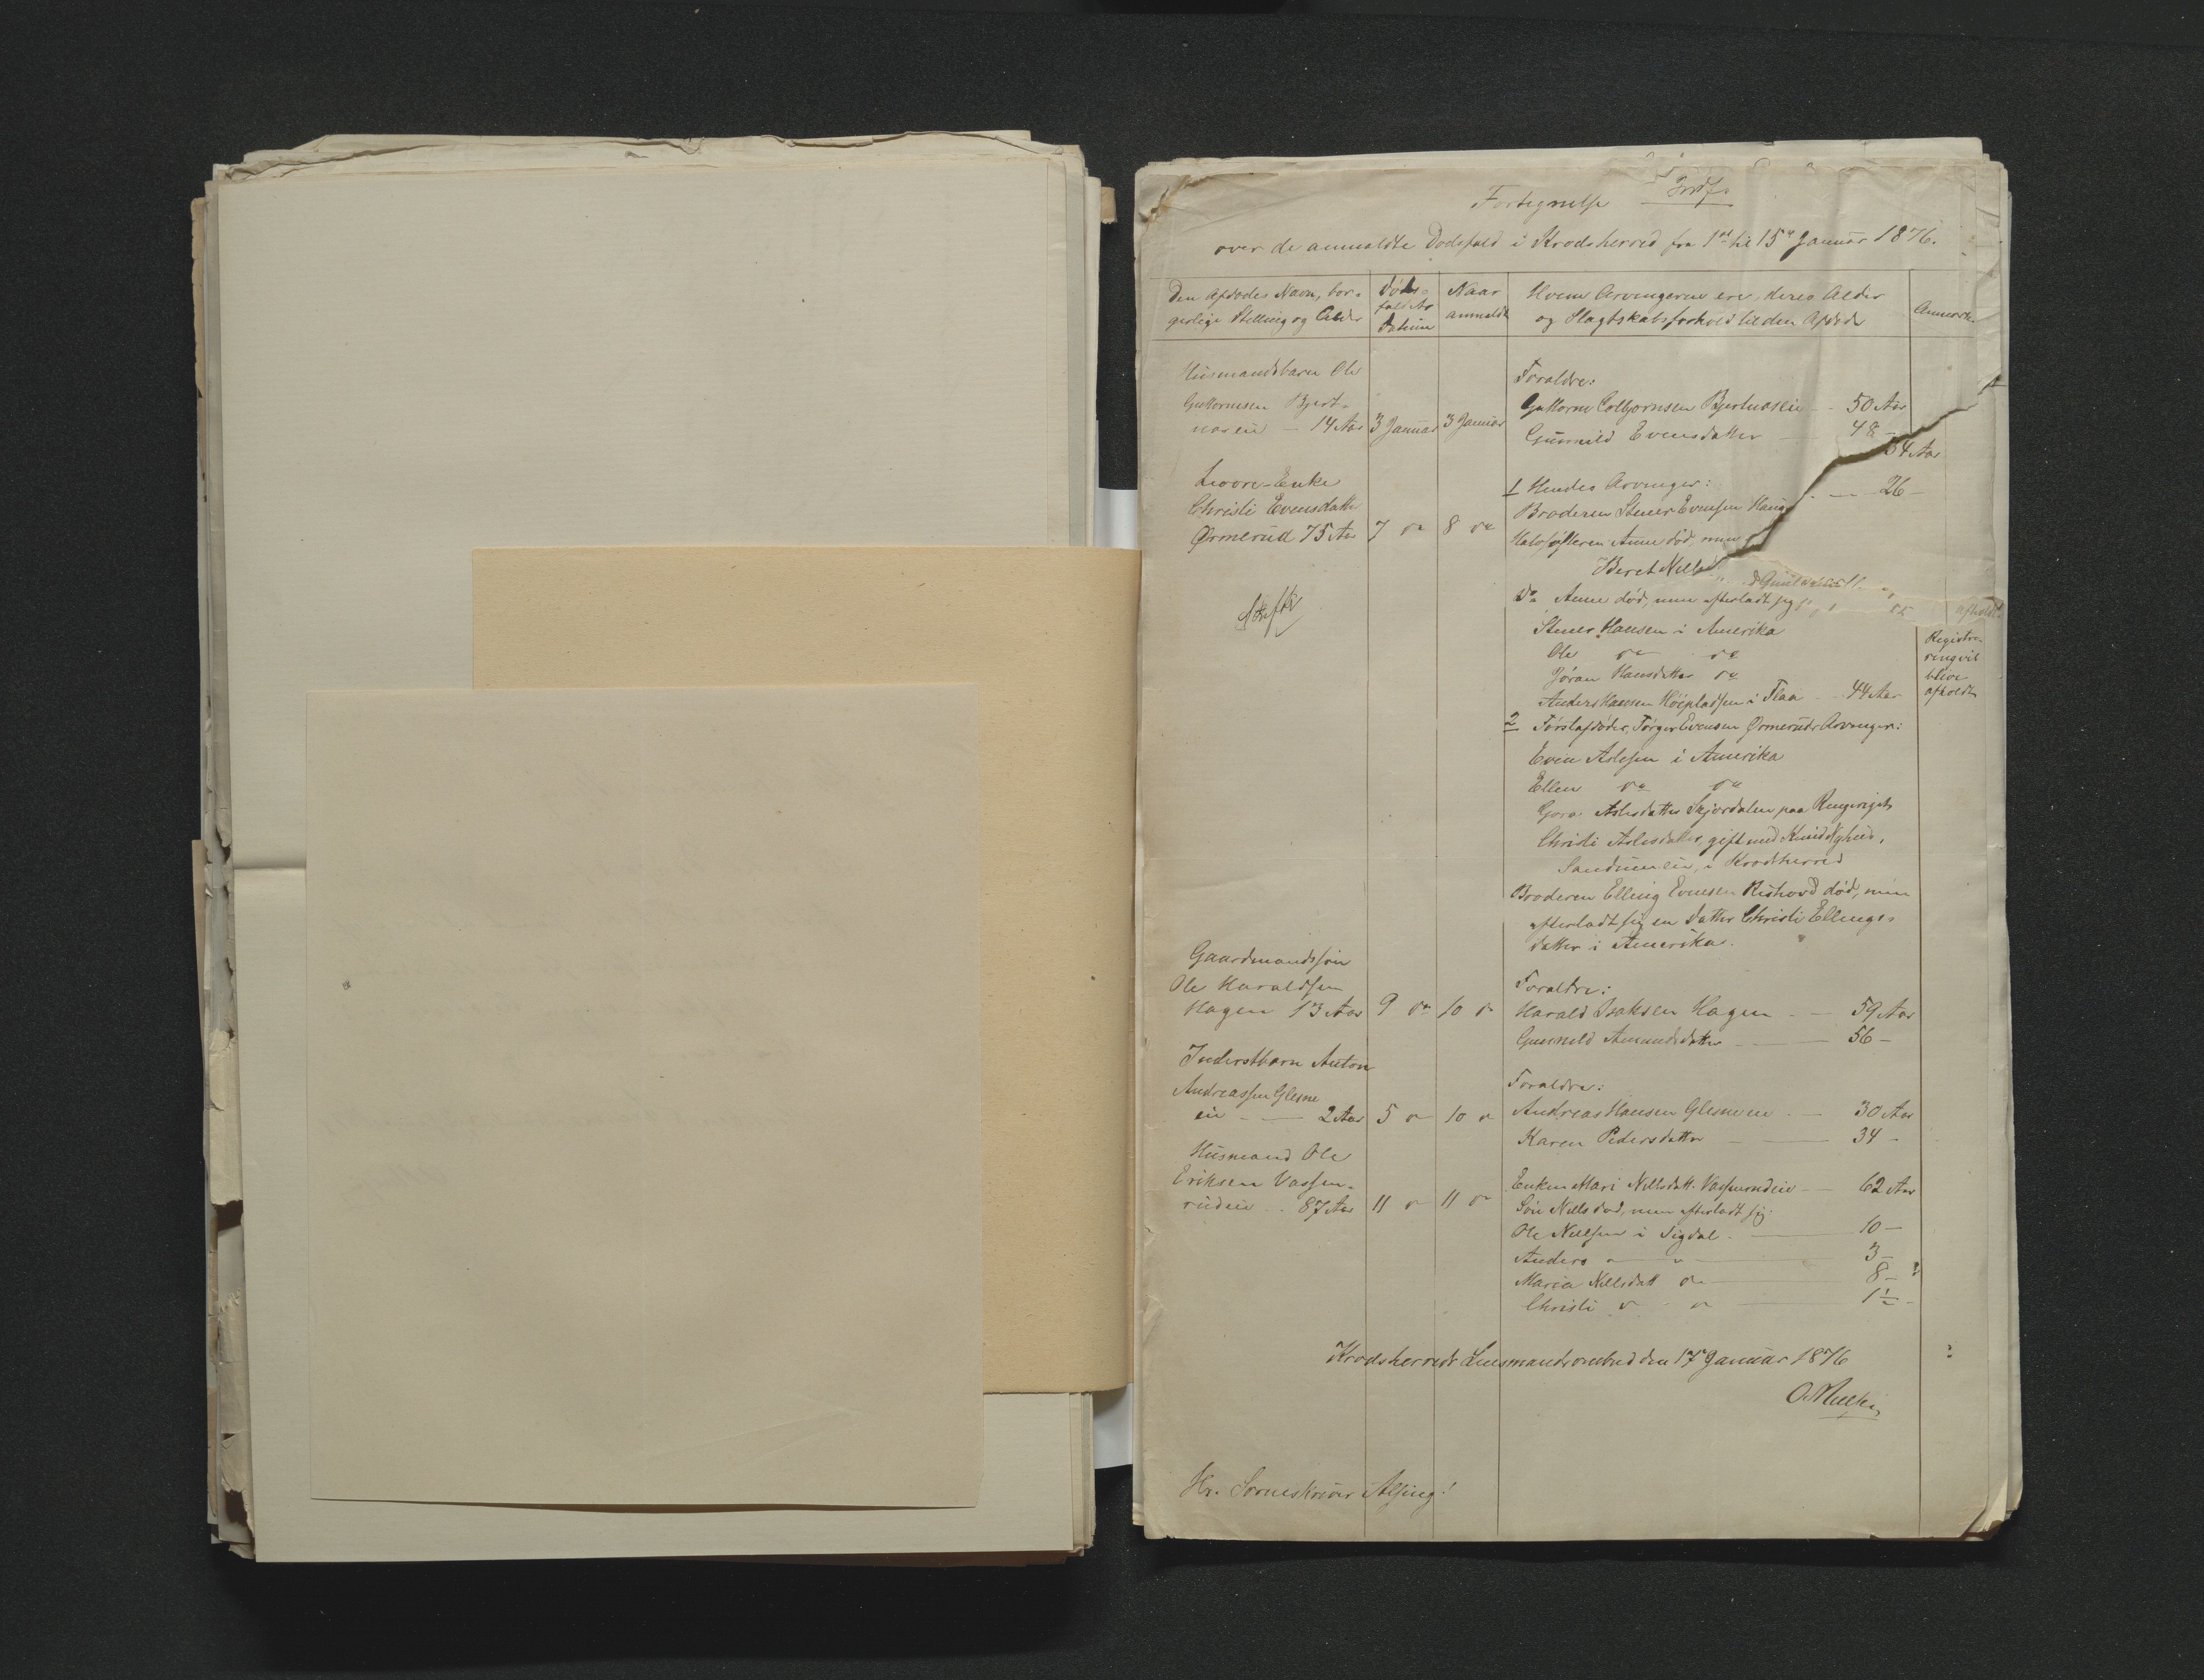 Fortegnelse
over de anmeldte Dødsfald i Krødsherred fra 1ste til 15de Januar 1876.
Den Afdødes Navn, bor-
gerlige Stilling og Alder
Døds-
faldets
Datum
Naar
anmeldt
Hvem Arvingerne ere, deres Alder
og Slægtskabsforhold til den Afdøde
Anmærk.
Husmandsbarn Ole
Guttormsen Bjert-
næseie – 14 Aar 3 Januar 3 Januar
Forældre:
Guttorm Colbjørnsen Bjertnæseie – 50 Aar
Gunnild Evensdatter – 48 –
64 Aar
26 –
Enke
Christi Evensdatter
Ørmerud 75 Aar 7 do 8 do
1 Hendes Arvinger:
Broderen Stener Evensen Haug
Halvsøsteren Anne død, men
Beret Niels
do Anne død, men efterladt sig
55
afholdt.
Stener Hansen i Amerika
Ole do do
Jøran Hansdatter do
Anders Hansen Høiepladsen i Flaa – 44 Aar
Registre-
ring vil
blive
afholdt
2 Førstafdøde, Torger Evensen Ørmeruds Arvinger:
Even Aslesen i Amerika
Ellen do do
Gora Aslesdatter Skjørdalen paa Ringeriget
Christi Aslesdatter, gift med Knud Nyhus,
Sandumeie, i Krødsherred
Broderen Elling Evensen Rishovd død, men
efterladt sig en Datter Christi Ellings-
datter i Amerika.
Gaardmandssøn
Ole Haraldsen
Hagen 13 Aar 9 do 10 do
Forældre:
Harald Isaksen Hagen – 59 Aar
Gunnild Amundsdatter – 56 –
Inderstbarn Anton
Andreassen Glesne
eie – 2 Aar 5 do 10 do
Forældre:
Andreas Hansen Glesneeie – 30 Aar
Karen Pedersdatter – 34 –
Husmand Ole
Eriksen Vassen-
rudeie .. 87 Aar 11 do 11 do
Enken Mari Nielsdatt. Vassenrudeie – 62 Aar
Søn Niels død, men efterladt sig:
Ole Nielsen i Sigdal. – 10 –
Anders do do – 3 –
Maria Nielsdatt do – 8 –
Christi do do – 1½ –
Krødsherreds Lensmandsombud den 17de Januar 1876
Hr. Sorenskriver Alsing!